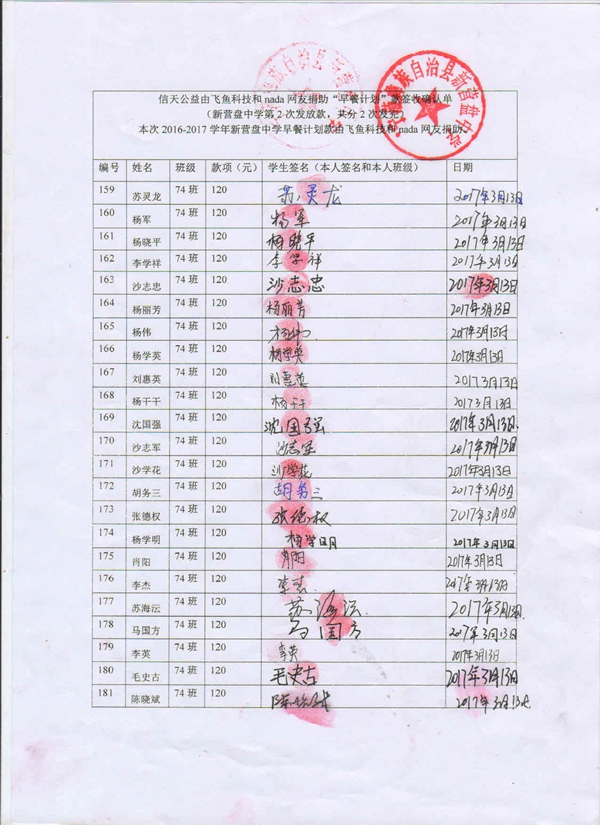 信天公益由飞鱼科技和nada网友捐助“早餐计划”款签收确认单
（新营盘中学第2次发放款，共分2次发完）
本次2016-2017学年新营盘中学早餐计划款由飞鱼科技和nada网友捐助。
编号 姓名 班级 款项（元） 学生签名（本人签名和本人班级） 日期
159 苏灵龙 74班 120 苏灵龙 2017年3月13日
160 杨军 74班 120 杨军 2017年3月13日
161 杨晓平 74班 120 杨晓平 2017年3月13日
162 李学祥 74班 120 李学祥 2017年3月13日
163 沙志忠 74班 120 沙志忠 2017年3月13日
164 杨丽芳 74班 120 杨丽芳 2017年3月13日
165 杨伟 74班 120 杨伟 2017年3月13日
166 杨学英 74班 120 杨学英 2017年3月13日
167 刘惠英 74班 120 刘惠英 2017年3月13日
168 杨干干 74班 120 杨干干 2017年3月13日
169 沈国强 74班 120 沈国强 2017年3月13日.
170 沙志军 74班 120 沙志军 2017年3月13日
171 沙学花 74班 120 沙学花 2017年3月13日
172 胡务三 74班 120 胡务三 2017年3月13日
173 张德权 74班 120 张德权 2017年3月13日
174 杨学明 74班 120 杨学明 2017年3月13日
175 肖阳 74班 120 肖阳 2017年3月13日
176 李杰 74班 120 李杰. 2017年3月13日
177 苏海沄 74班 120 苏海沄. 2017年3月13日.
178 马国方 74班 120 马国方 2017年3月13日
179 李英 74班 120 李英 2017年3月13日
180 毛史古 74班 120 毛史古 2017年3月13日
181 陈晓斌 74班 120 陈晓斌 2017年3月13日
彝族自治县新营盘中学